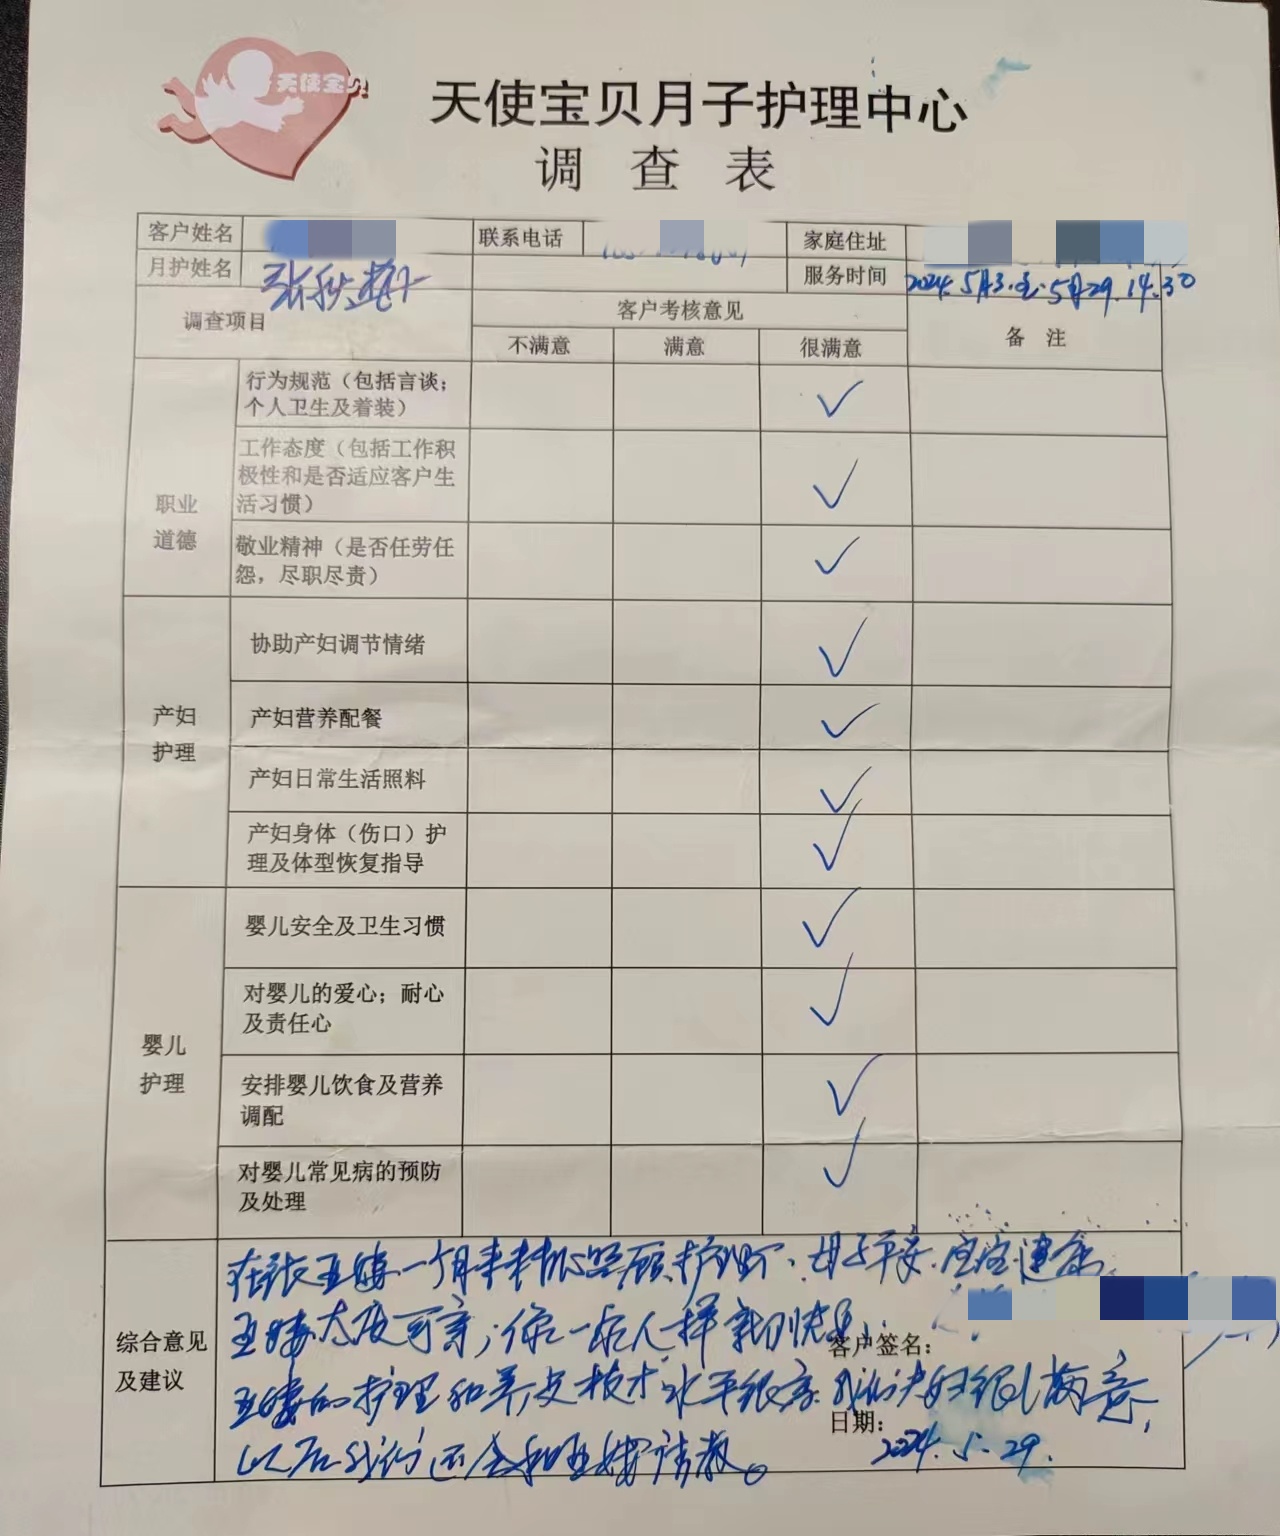 天使宝贝
天使宝贝月子护理中心
调 查 表
客户姓名 联系电话 家庭住址
月护姓名 张秋梅 服务时间 2024.5月3.至.5月29.14.30
调查项目 客户考核意见 备 注
不满意 满意 很满意
职业
道德
行为规范（包括言谈；
个人卫生及着装）
工作态度（包括工作积
极性和是否适应客户生
活习惯）
敬业精神（是否任劳任
怨，尽职尽责）
产妇
护理
协助产妇调节情绪
产妇营养配餐
产妇日常生活照料
产妇身体（伤口）护
理及体型恢复指导
婴儿
护理
婴儿安全及卫生习惯
对婴儿的爱心；耐心
及责任心
安排婴儿饮食及营养
调配
对婴儿常见病的预防
及处理
综合意见
及建议
一个月来 照顾护理下，母子平安，宝宝健康
大度可亲； 一家人一样
的护理和 技术水平很高，我们夫妇很满意，
以后我们还会和 请教。
客户签名：
日期：
2024.5.29.